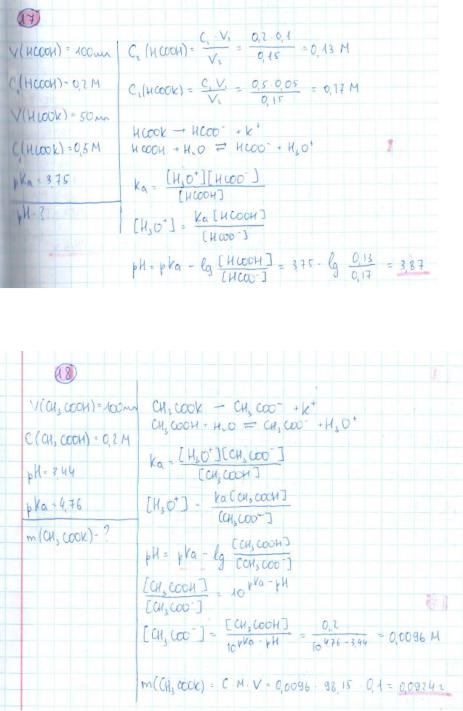 17
V(HCOOH) = 100мл
C₁(HCOOH) = 0,2 M
V(HCOOK) = 50мл
C₁(HCOOK) = 0,5 M
pKa = 3,75
pH - ?
C₂(HCOOH) = C₁ · V₁ / V₂ = 0,2 · 0,1 / 0,15 = 0,13 M
C₂(HCOOK) = C₁ V₁ / V₂ = 0,5 · 0,05 / 0,15 = 0,17 M
HCOOK → HCOO⁻ + K⁺
HCOOH + H₂O ⇌ HCOO⁻ + H₃O⁺
Ka = [H₃O⁺][HCOO⁻] / [HCOOH]
[H₃O⁺] = Ka [HCOOH] / [HCOO⁻]
pH = pKa - lg [HCOOH] / [HCOO⁻] = 3,75 - lg 0,13 / 0,17 = 3,87
18
V(CH₃COOH) = 100мл
C(CH₃COOH) = 0,2 M
pH = 3,44
pKa = 4,76
m(CH₃COOK) - ?
CH₃COOK → CH₃COO⁻ + K⁺
CH₃COOH + H₂O ⇌ CH₃COO⁻ + H₃O⁺
Ka = [H₃O⁺][CH₃COO⁻] / [CH₃COOH]
[H₃O⁺] = Ka [CH₃COOH] / [CH₃COO⁻]
pH = pKa - lg [CH₃COOH] / [CH₃COO⁻]
[CH₃COOH] / [CH₃COO⁻] = 10^(pKa - pH)
[CH₃COO⁻] = [CH₃COOH] / 10^(pKa - pH) = 0,2 / 10^(4,76 - 3,44) = 0,0096 M
m(CH₃COOK) = C · M · V = 0,0096 · 98,15 · 0,1 = 0,0924 г